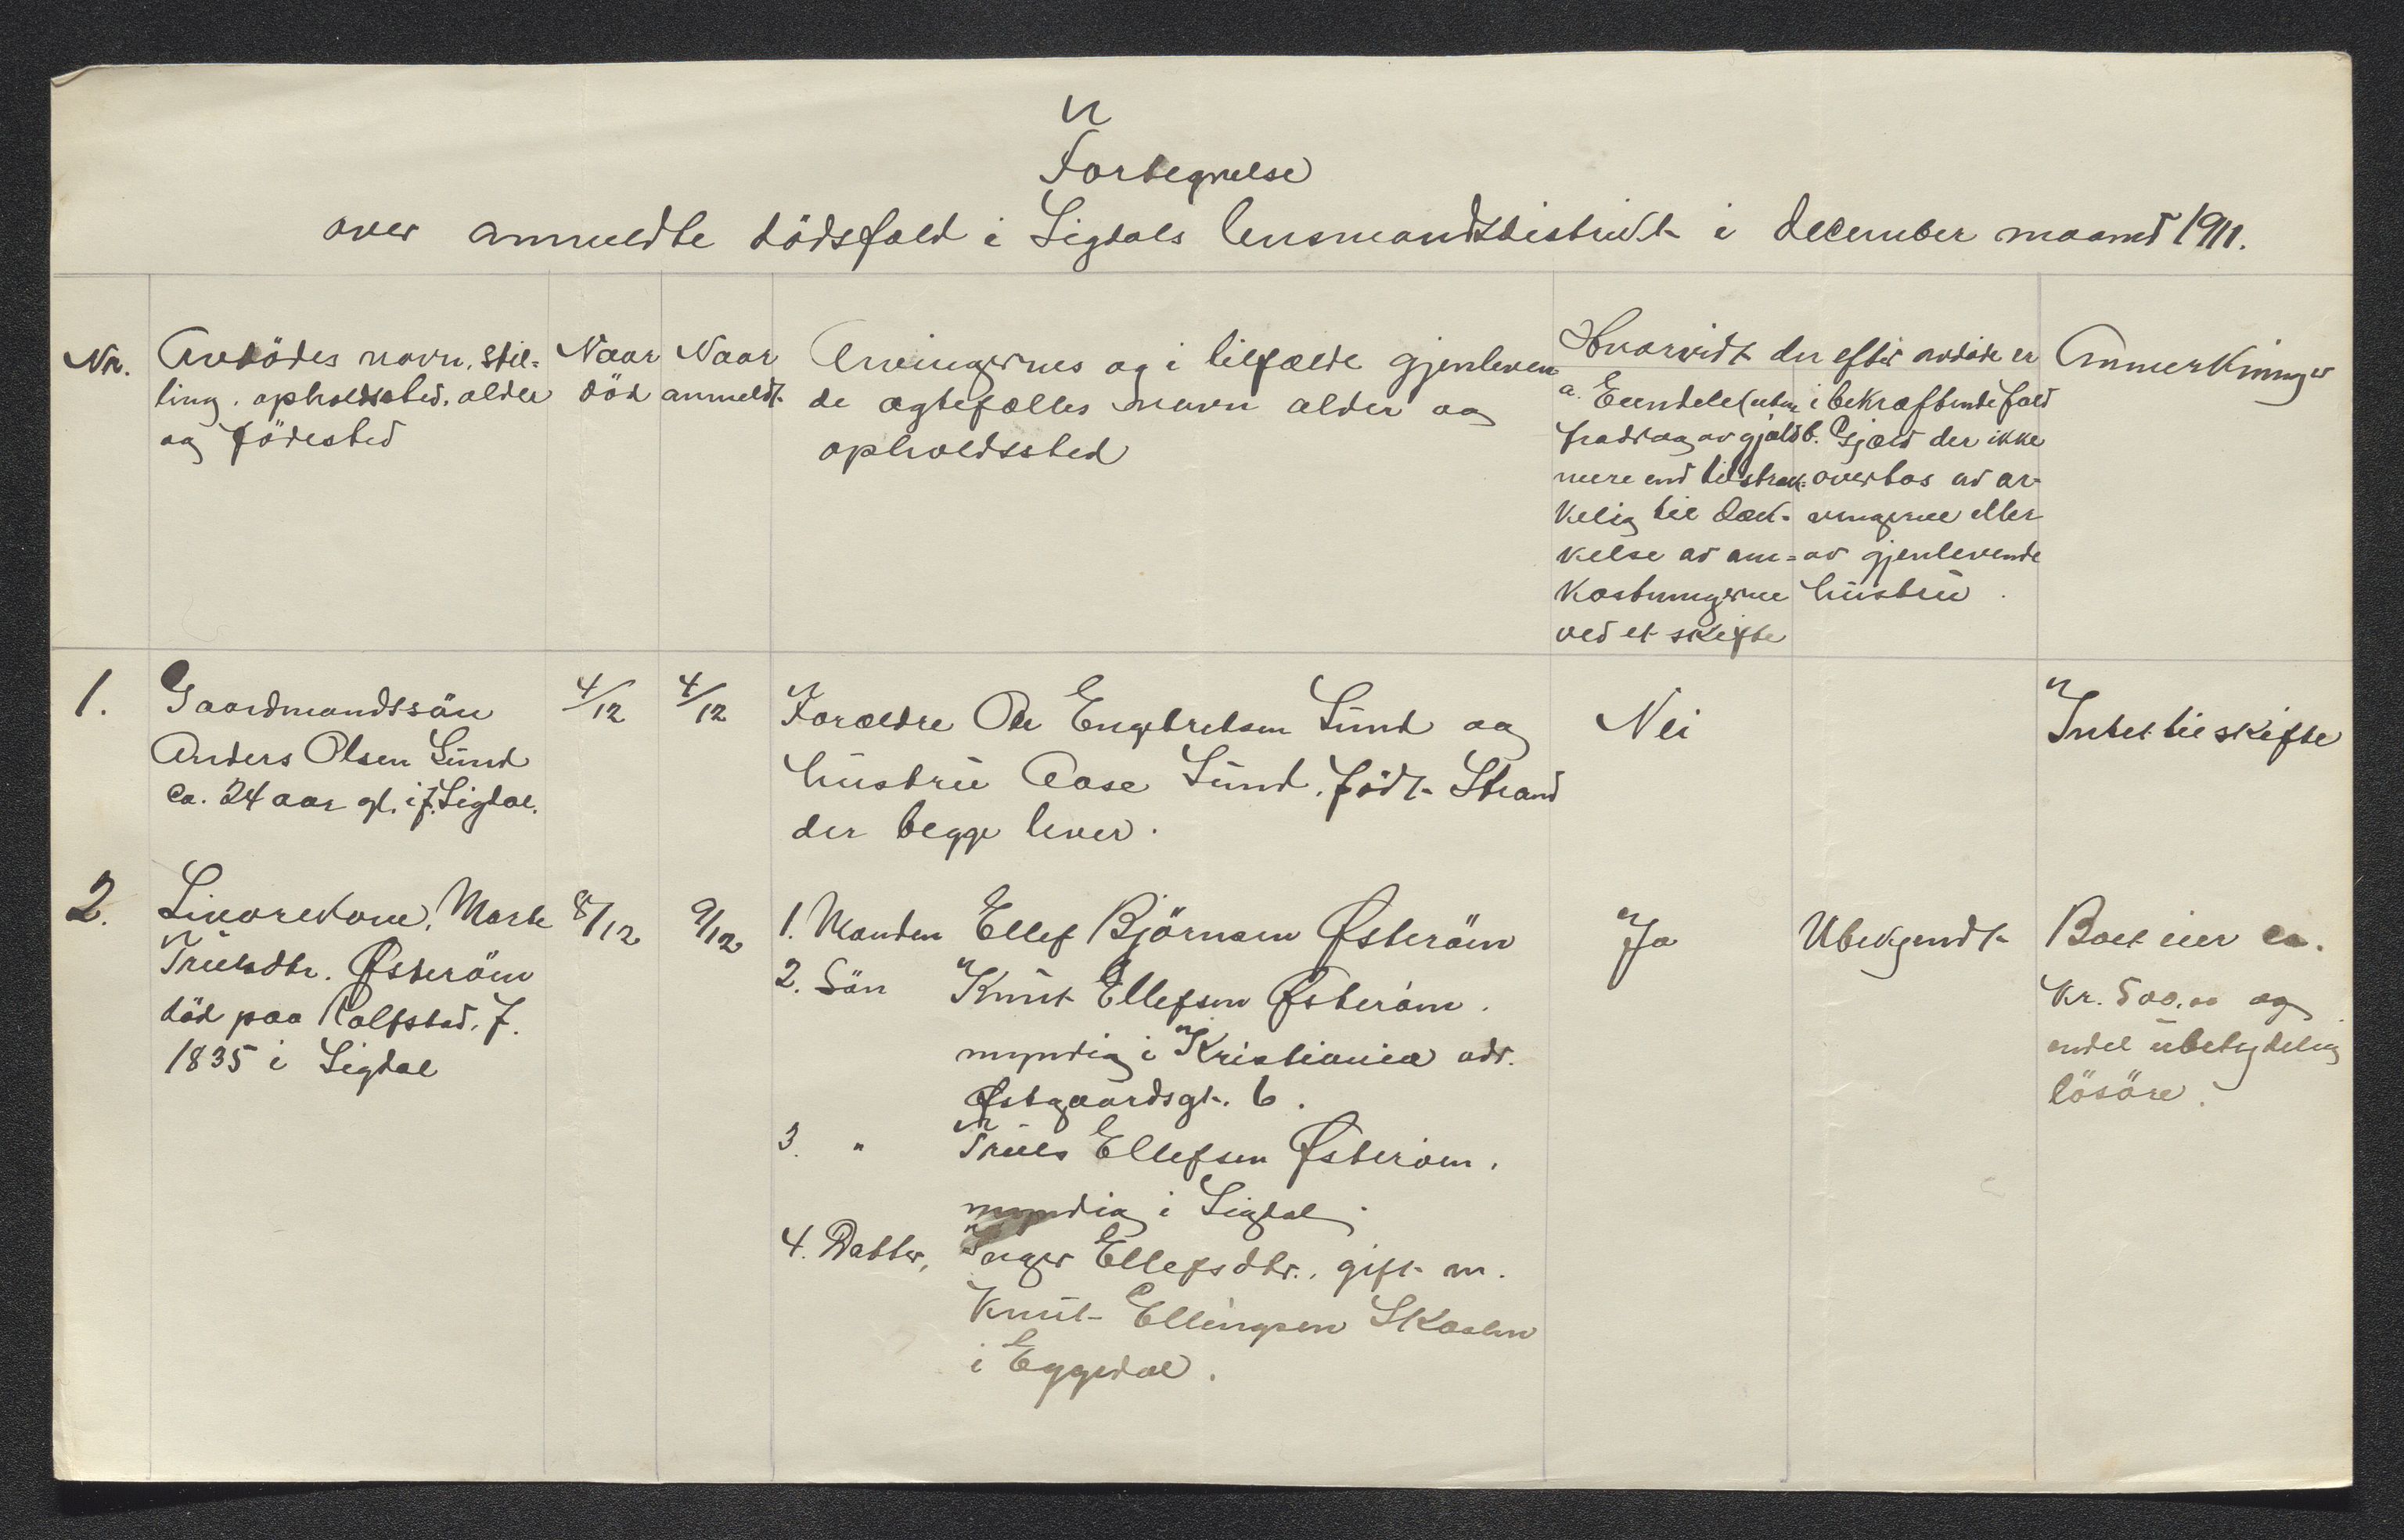 Fortegnelse
over anmeldte dödsfald i Sigdals lensmandsdistrikt i december maaned 1911.
Nr.
Avdödes navn, stil-
ling, opholdssted, alder
og födested
Naar
död
Naar
anmeldt
Arvingernes og i tilfælde gjenleven
de ægtefælles navn alder og
opholdssted
Hvorvidt der efter avdöde er
a. Eiendele (uten
fradrag av gjæld
mere end tilstræk-
kelig til dæk-
kelse av om-
kostningerne
ved et skifte
i bekræftende fald
b. Gjæld der ikke
overtas av ar-
vingerne eller
av gjenlevende
hustru.
Anmerkninger
1.
Gaardmandssön
Anders Olsen Lund
ca. 24 aar gl. i f. Sigdal.
4/12
4/12
Forældre Ole Engebretsen Lund og
hustru Aase Lund, född Strand
der begge lever.
Nei
Intet til skifte
2.
Livörekone, Marte
Trulsdtr. Østeröm
död paa Kolfstad, f.
1835 i Sigdal
8/12
9/12
1. Manden Ellef Björnsen Østeröm
2. Sön Knut Ellefsen Østeröm.
myndig i Kristiania adr.
Østgaardsgt. 6.
3. " Truls Ellefsen Østeröm,
myndig i Sigdal.
4. Datter, Inger Ellefsdtr., gift m.
Knut Ellingsen Skaalen
i Eggedal.
Ja
Ubekjendt
Boet eier ca.
Kr. 500,00 og
endel ubetydelig
lösöre.